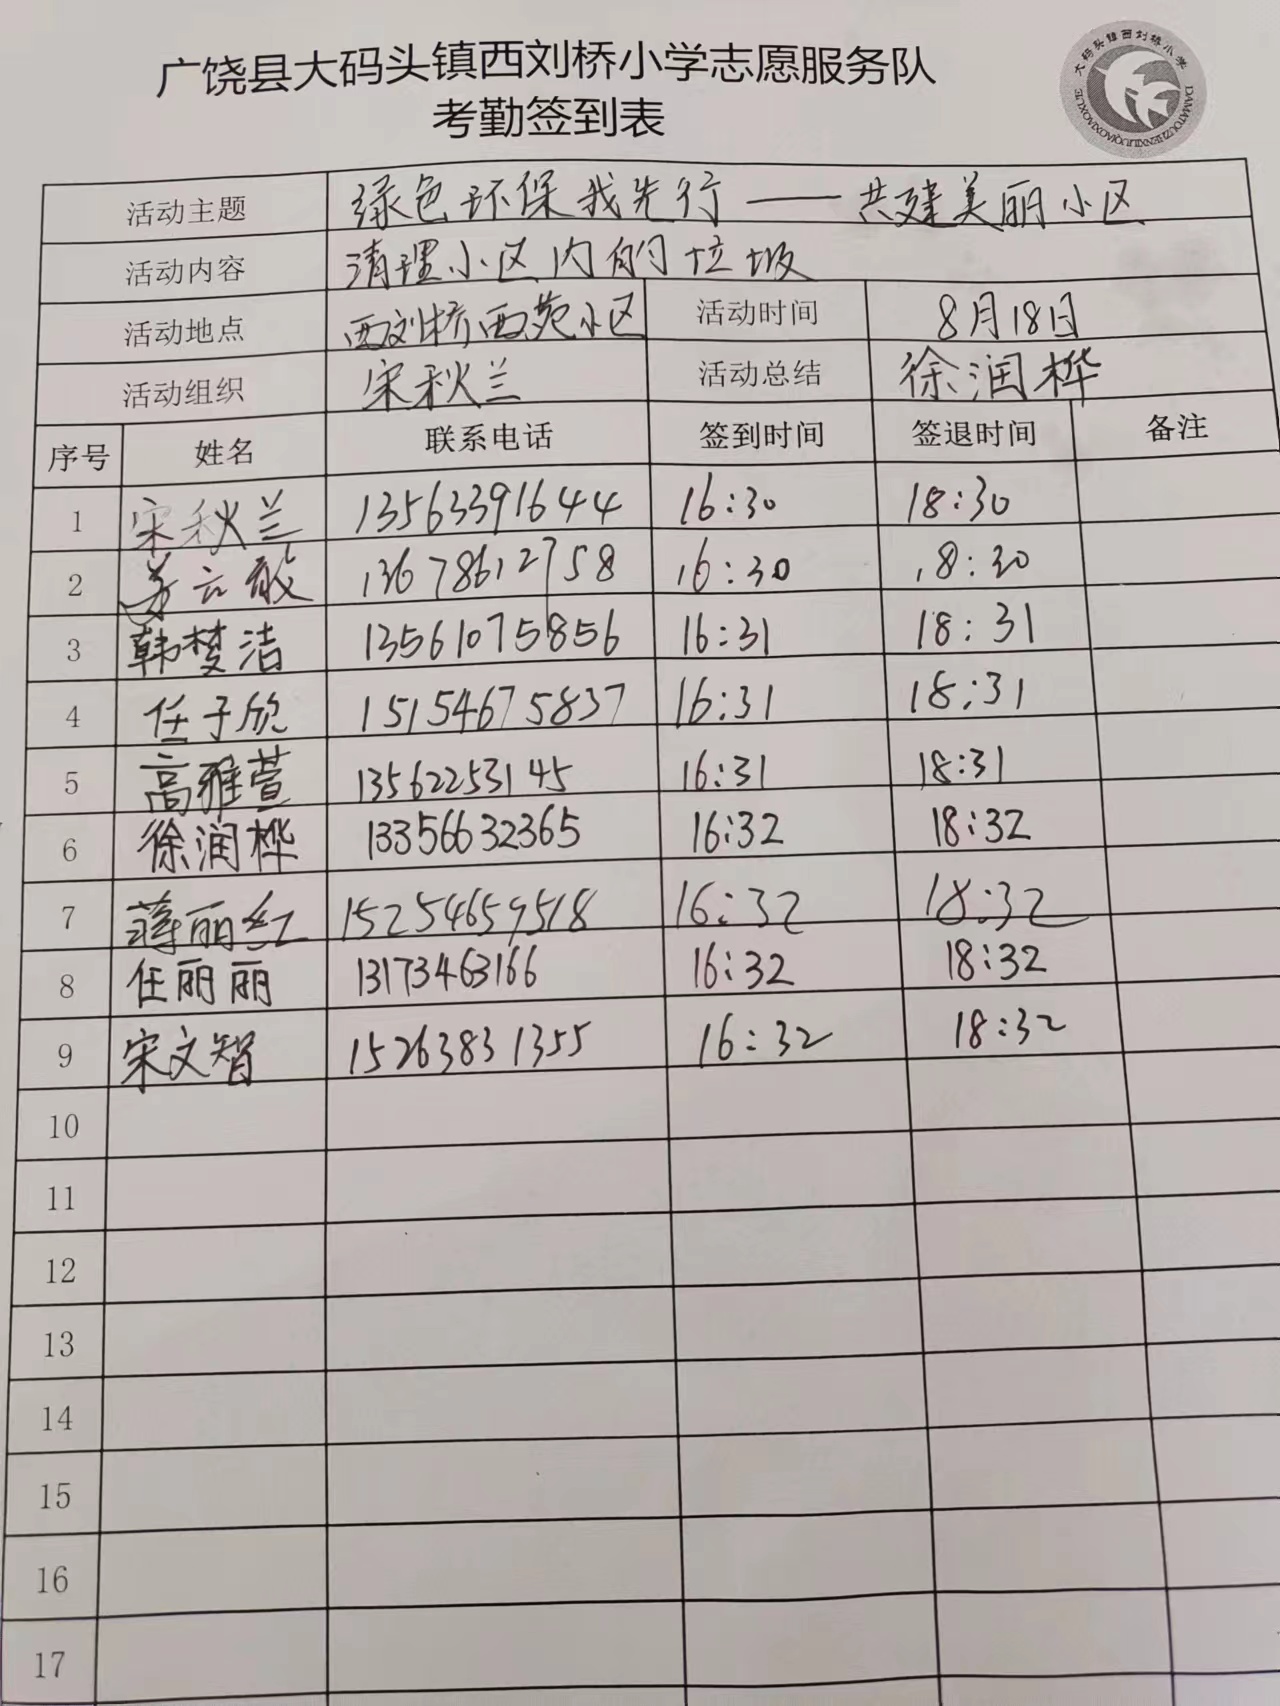 广饶县大码头镇西刘桥小学志愿服务队
考勤签到表
大码头镇西刘桥小学
DAMATOUZHENXILIUQIAOXIAOXUE
活动主题 绿色环保我先行——共建美丽小区
活动内容 清理小区内的垃圾
活动地点 西刘桥西苑小区 活动时间 8月18日
活动组织 宋秋兰 活动总结 徐润桦
序号 姓名 联系电话 签到时间 签退时间 备注
1 宋秋兰 13563391644 16:30 18:30
2 云敏 13678612758 16:30 18:30
3 韩梦洁 13561075856 16:31 18:31
4 任子欣 15154675837 16:31 18:31
5 高雅萱 13562253145 16:31 18:31
6 徐润桦 13356632365 16:32 18:32
7 蒋丽红 15254659518 16:32 18:32
8 任丽丽 13173463166 16:32 18:32
9 宋文智 15263831355 16:32 18:32
10
11
12
13
14
15
16
17